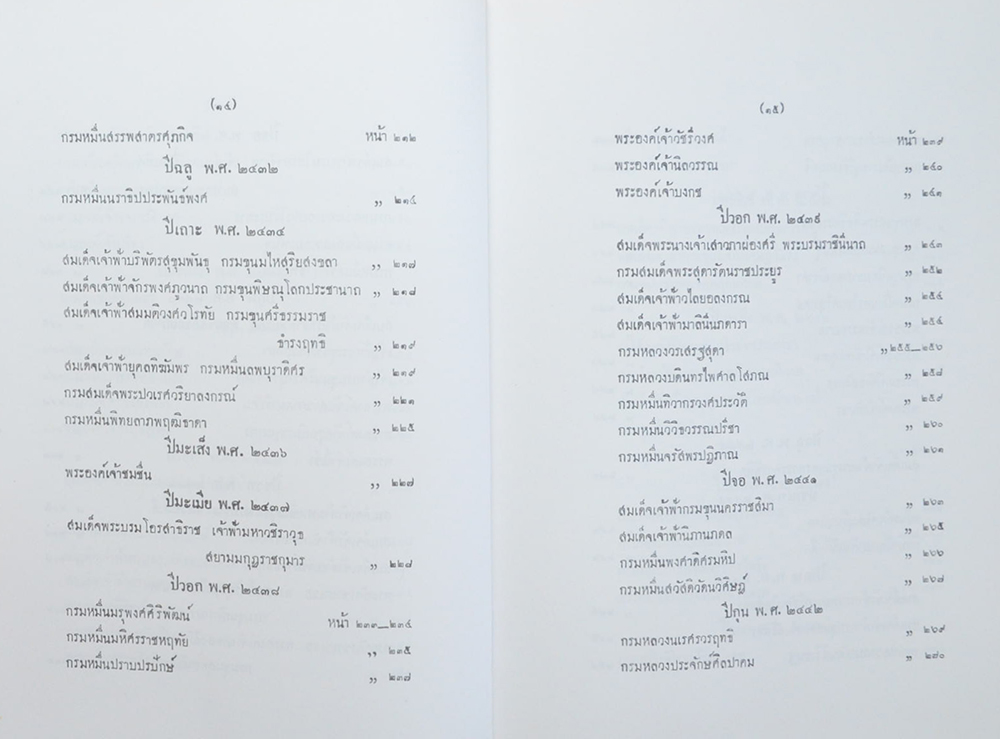 (๑๔)
กรมหมื่นสรรพสาตรศุภกิจ หน้า ๒๑๒
ปีฉลู พ.ศ. ๒๔๓๒
กรมหมื่นนราธิปประพันธ์พงศ์ ,, ๒๑๔
ปีเถาะ พ.ศ. ๒๔๓๔
สมเด็จเจ้าฟ้าบริพัตรสุขุมพันธุ กรมขุนมไหสุริยสงขลา ,, ๒๑๗
สมเด็จเจ้าฟ้าจักรพงศ์ภูวนาถ กรมขุนพิษณุโลกประชานาถ ,, ๒๑๘
สมเด็จเจ้าฟ้าสมมติวงศ์วโรทัย กรมขุนศรีธรรมราช
ธำรงฤทธิ ,, ๒๑๙
สมเด็จเจ้าฟ้ายุคลทิฆัมพร กรมหมื่นลพบุราดิศร ,, ๒๑๙
กรมสมเด็จพระปวเรศวริยาลงกรณ์ ,, ๒๒๑
กรมหมื่นพิทยลาภพฤฒิธาดา ,, ๒๒๕
ปีมะเส็ง พ.ศ. ๒๔๓๖
พระองค์เจ้าชมชื่น ,, ๒๒๗
ปีมะเมีย พ.ศ. ๒๔๓๗
สมเด็จพระบรมโอรสาธิราช เจ้าฟ้ามหาวชิราวุธ
สยามมกุฎราชกุมาร ,, ๒๒๘
ปีวอก พ.ศ. ๒๔๓๘
กรมหมื่นมรุพงศ์ศิริพัฒน์ หน้า ๒๓๓—๒๓๔
กรมหมื่นมหิศรราชหฤทัย ,, ๒๓๕
กรมหมื่นปราบปรปักษ์ ,, ๒๓๗
(๑๕)
พระองค์เจ้าวัชรีวงศ์ หน้า ๒๓๙
พระองค์เจ้านิลวรรณ ,, ๒๔๐
พระองค์เจ้าบงกช ,, ๒๔๑
ปีวอก พ.ศ. ๒๔๓๙
สมเด็จพระนางเจ้าเสาวภาผ่องศรี พระบรมราชินีนาถ ,, ๒๔๓
กรมสมเด็จพระสุดารัตนราชประยูร ,, ๒๕๒
สมเด็จเจ้าฟ้าวไลยอลงกรณ์ ,, ๒๕๔
สมเด็จเจ้าฟ้ามาลินีนภดารา ,, ๒๕๔
กรมหลวงวรเสรฐสุดา ,, ๒๕๕—๒๕๖
กรมหลวงบดินทรไพศาลโสภณ ,, ๒๕๘
กรมหมื่นทิวากรวงศ์ประวัติ ,, ๒๕๙
กรมหมื่นวิวิธวรรณปรีชา ,, ๒๖๐
กรมหมื่นจรัสพรปฏิภาณ ,, ๒๖๑
ปีจอ พ.ศ. ๒๔๔๑
สมเด็จเจ้าฟ้ากรมขุนนครราชสีมา ,, ๒๖๓
สมเด็จเจ้าฟ้านิภานภดล ,, ๒๖๕
กรมหมื่นพงศาดิศรมหิป ,, ๒๖๖
กรมหมื่นสวัสดิวัดนวิศิษฎ์ ,, ๒๖๗
ปีกุน พ.ศ. ๒๔๔๒
กรมหลวงนเรศรวรฤทธิ ,, ๒๖๙
กรมหลวงประจักษ์ศิลปาคม ,, ๒๗๐